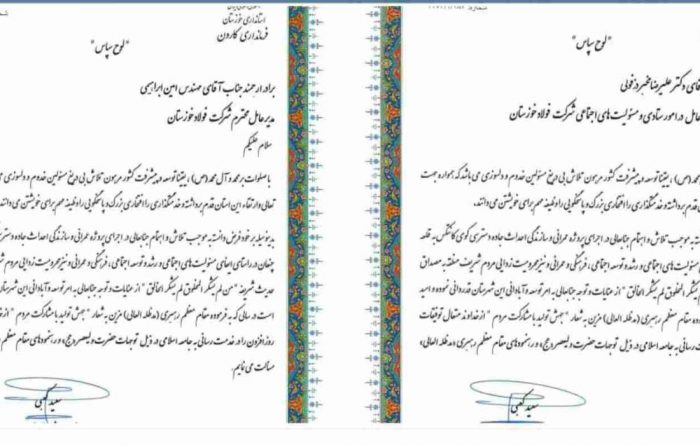 استانداری خوزستان
فرمانداری کارون
"لوح سپاس"
برادر ارجمند جناب آقای مهندس امین ابراهیمی
مدیرعامل محترم شرکت فولاد خوزستان
سلام علیکم
با صلوات بر محمد و آل محمد (ص)، یقینا توسعه و پیشرفت کشور مرهون تلاش بی دریغ مسئولین خدوم و دلسوزی می
تعالی وارتقاء این استان قدم برداشته و خدمتگذاری را افتخاری بزرگ و پاسخگویی را وظیفه مهم برای خویشتن می دانند.
بدینوسیله بر خود فرض دانسته به موجب تلاش و اهتمام جنابعالی در اجرای پروژه عمرانی و سازندگی احداث جاده دسترسی
در راستای ایفای مسئولیت های اجتماعی و رشد و توسعه اجتماعی، فرهنگی و عمرانی و نیز محرومیت زدایی مردم
حدیث شریفه "من لم یشکر المخلوق لم یشکر الخالق" از عنایات و توجه جنابعالی به امر توسعه و آبادانی این شهرستان
است در سالی که به فرموده مقام معظم رهبری (مدظله العالی) مزین به شعار "جهش تولید با مشارکت مردم"
روزافزون را در خدمت رسانی به جامعه اسلامی در ذیل توجهات حضرت ولیعصر (عج)، و رهنمودهای مقام معظم
مسألت می نمایم.
سعید کعبی
"لوح سپاس"
آقای دکتر علیرضا مخبر دزفولی
عامل در امور ستادی و مسئولیت های اجتماعی شرکت فولاد خوزستان
محمد (ص)، یقینا توسعه و پیشرفت کشور مرهون تلاش بی دریغ مسئولین خدوم و دلسوزی می باشد که همواره جهت
قدم برداشته و خدمتگذاری را افتخاری بزرگ و پاسخگویی را وظیفه مهم برای خویشتن می دانند.
به موجب تلاش و اهتمام جنابعالی در اجرای پروژه عمرانی و سازندگی احداث جاده دسترسی کوی
مسئولیت های اجتماعی و رشد و توسعه اجتماعی، فرهنگی و عمرانی و نیز محرومیت زدایی مردم شریف منطقه به مصداق
یشکر المخلوق لم یشکر الخالق" از عنایات و توجه جنابعالی به امر توسعه و آبادانی این شهرستان قدردانی نموده و امید
مقام معظم رهبری (مدظله العالی) مزین به شعار "جهش تولید با مشارکت مردم" از خداوند متعال توفیقات
رسانی به جامعه اسلامی در ذیل توجهات حضرت ولیعصر (عج)، و رهنمودهای مقام معظم رهبری (مدظله العالی)،
سعید کعبی